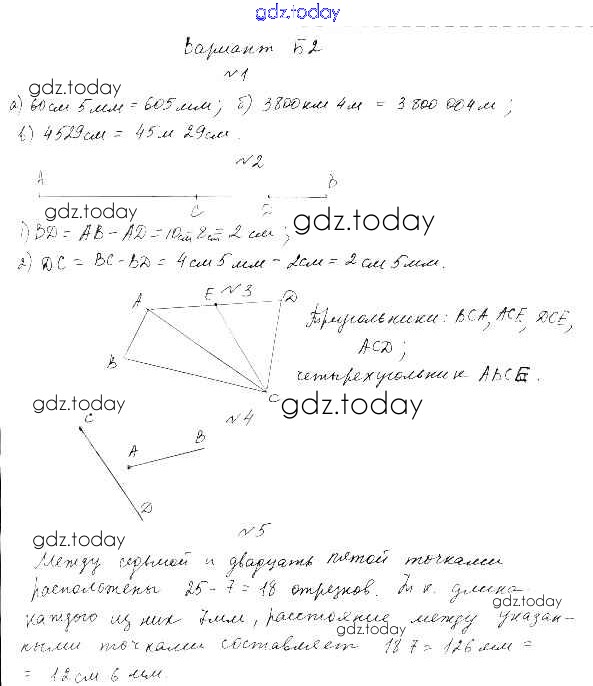 gdz.today
Вариант Б2
№1
gdz.today
а) 60см 5мм = 605мм; б) 3800км 4м = 3 800 004м;
в) 4529см = 45м 29см.
№2
A B
C D
gdz.today gdz.today
1) BD = AB - AD = 10см 8см = 2 см;
2) DC = BC - BD = 4см 5мм - 2см = 2 см 5мм.
№3
A E D
B C
Треугольники: BCA, ACE, DCE,
ACD;
четырехугольник ABCE.
gdz.today gdz.today
№4
C A B D
№5
gdz.today
Между седьмой и двадцать пятой точками
расположены 25 - 7 = 18 отрезков. Т. к. длина
gdz.today
каждого из них 7мм, расстояние между указан-
gdz.today
ными точками составляет 18 7 = 126мм =
= 12см 6 мм.